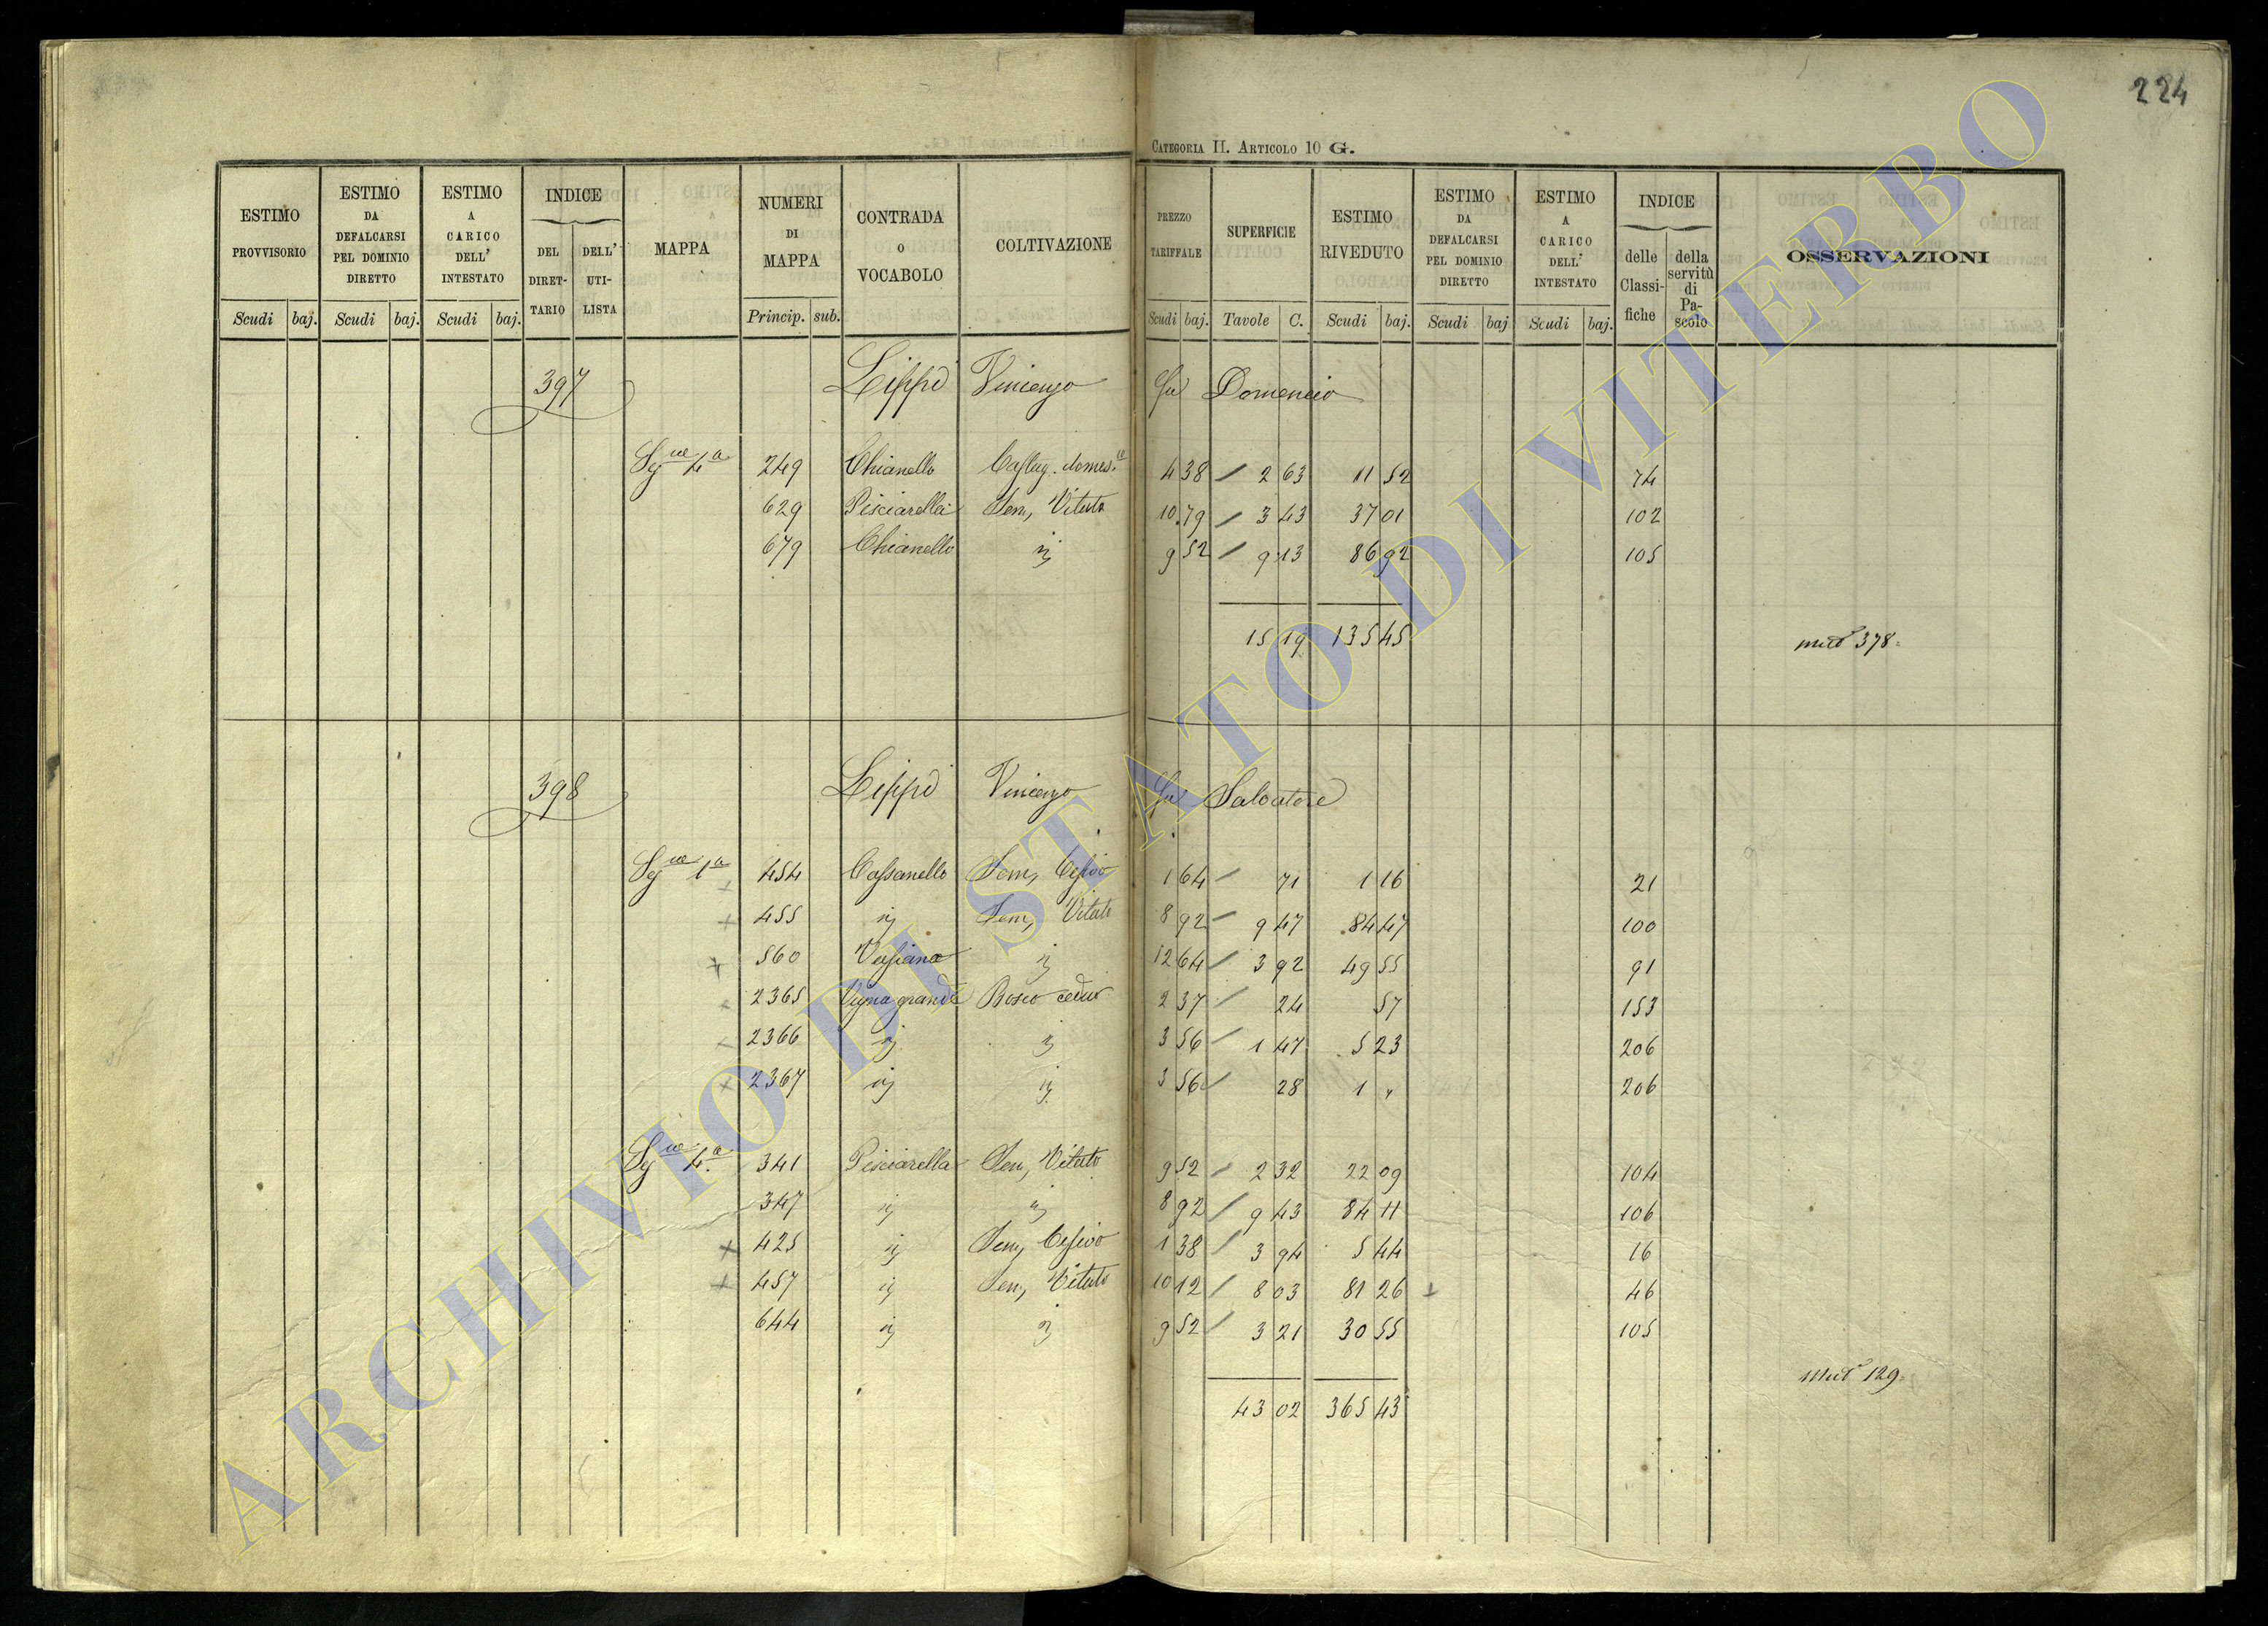 224
CATEGORIA II. ARTICOLO 10 G.
ESTIMO PROVVISORIO Scudi baj. ESTIMO DA DEFALCARSI PEL DOMINIO DIRETTO Scudi baj. ESTIMO A CARICO DELL' INTESTATO Scudi baj. INDICE DEL DIRET-TARIO DELL' UTI-LISTA MAPPA NUMERI DI MAPPA Princip. sub. CONTRADA O VOCABOLO COLTIVAZIONE PREZZO TARIFFALE Scudi baj. SUPERFICIE Tavole C. ESTIMO RIVEDUTO Scudi baj. ESTIMO DA DEFALCARSI PEL DOMINIO DIRETTO Scudi baj ESTIMO A CARICO DELL' INTESTATO Scudi baj. INDICE delle Classi-fiche della servitù di Pa-scolo OSSERVAZIONI
397 Lippi Vincenzo fu Domenico
Sgne 4a 249 Chianello Castag. domes.co 4 38 / 2 63 11 52 74
629 Pisciarella Sem, Vitato 10 79 / 3 43 37 01 102
679 Chianello ij 9 52 / 9 13 86 92 105
15 19 135 45
mut 378
398 Lippi Vincenzo fu Salvatore
Sgne 1a 454 Cassanello Sem, Cesivo 1 64 / 71 1 16 21
+ 455 ij Sem, Vitato 8 92 / 9 47 84 47 100
+ 560 Vassiano ij 12 64 / 3 92 49 55 91
2365 Vigna grande Bosco ceduo 2 37 / 24 57 153
2366 ij ij 3 56 / 1 47 5 23 206
+ 2367 ij ij 3 56 / 28 1 " 206
Sgne 4.a 341 Pisciarella Sem, Vitato 9 52 / 2 32 22 09 104
347 ij ij 8 92 / 9 43 84 11 106
+ 425 ij Sem, Cesivo 1 38 / 3 94 5 44 16
+ 457 ij Sem, Vitato 10 12 / 8 03 81 26 + 46
644 ij ij 9 52 / 3 21 30 55 105
mut 129
43 02 365 43
ARCHIVIO DI STATO DI VITERBO